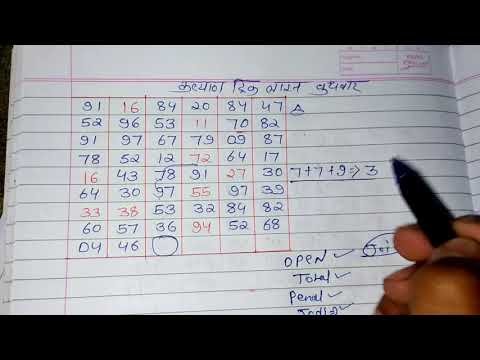 कल्याण ट्रिक लाईन बुधवार
91 16 84 20 84 47 A
52 96 53 11 70 82
91 97 67 79 09 87
78 52 12 72 64 17
16 43 78 91 27 30 7+7+9⇒3
64 30 97 55 97 39
33 38 53 32 84 82
60 57 36 94 52 68
04 46
OPEN ✓
Total ✓
Penal ✓